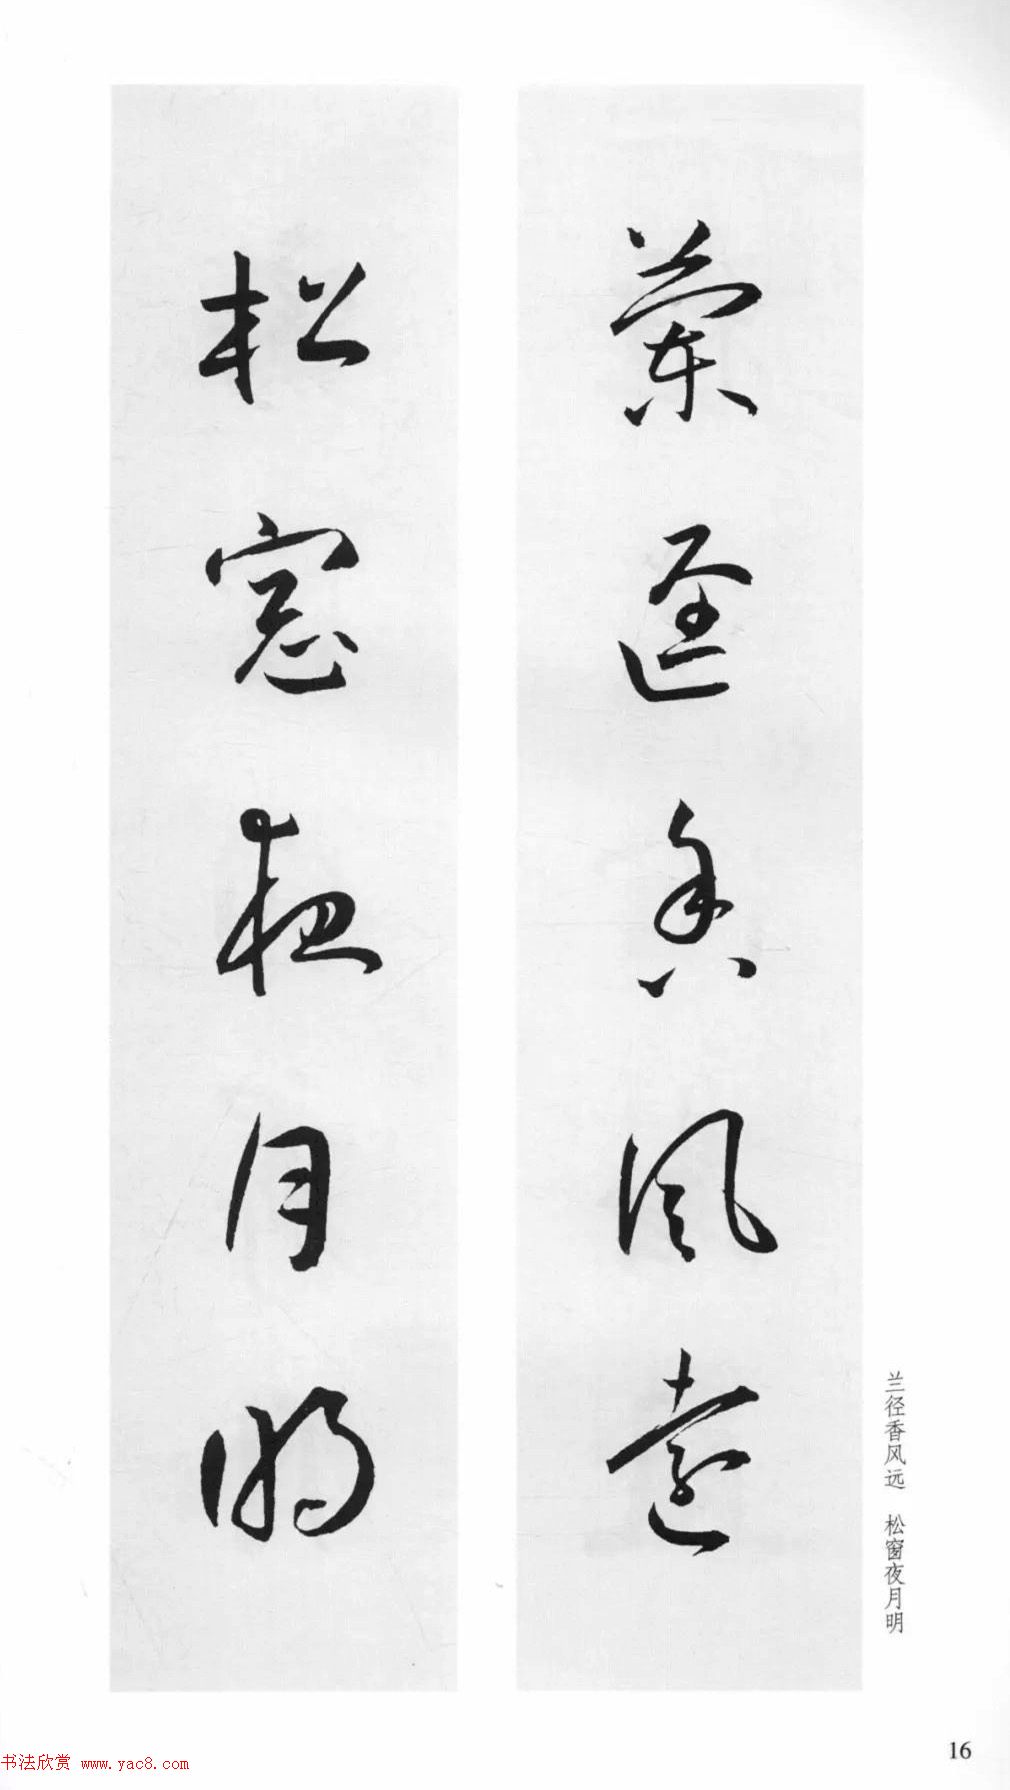 蘭迳香風遠
松窓夜月明
兰径香风远　松窗夜月明
16
书法欣赏 www.yac8.com